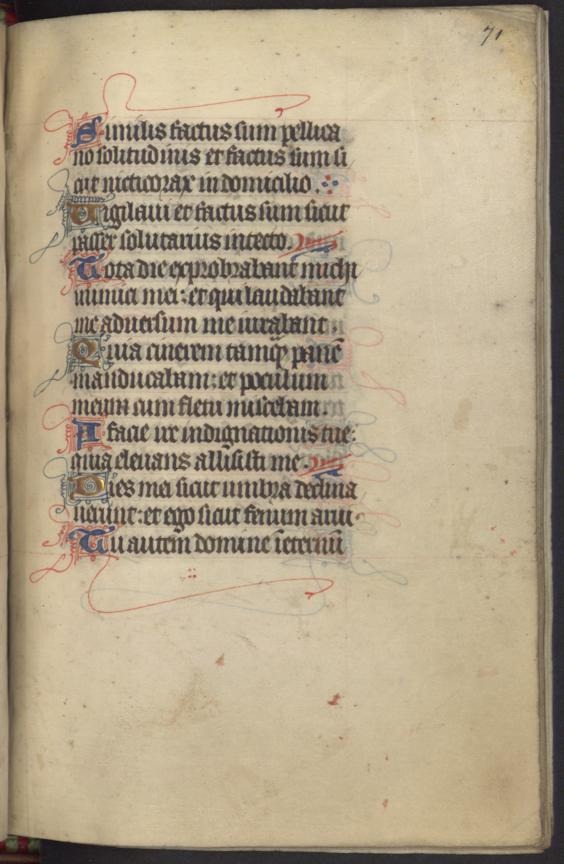 71
Similis factus sum pellica
no solitudinis et factus sum si
cut nicticorax in domicilio.
Vigilaui et factus sum sicut
passer solitarius in tecto.
Tota die exprobrabant michi
inimici mei: et qui laudabant
me aduersum me iurabant.
Quia cinerem tamq̃ panẽ
manducabam: et poculum
meum cum fletu miscebam.
A facie ire indignationis tue:
quia eleuans allisisti me.
Dies mei sicut umbra declina
uerunt: et ego sicut fenum arui.
Tu autem domine ĩeternũ